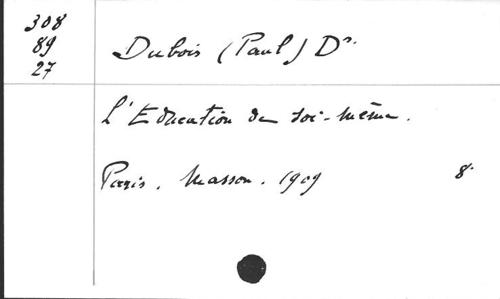 308
89
27
Dubois (Paul) Dr.
L'Education de soi-même.
Paris. Masson. 1909 8°